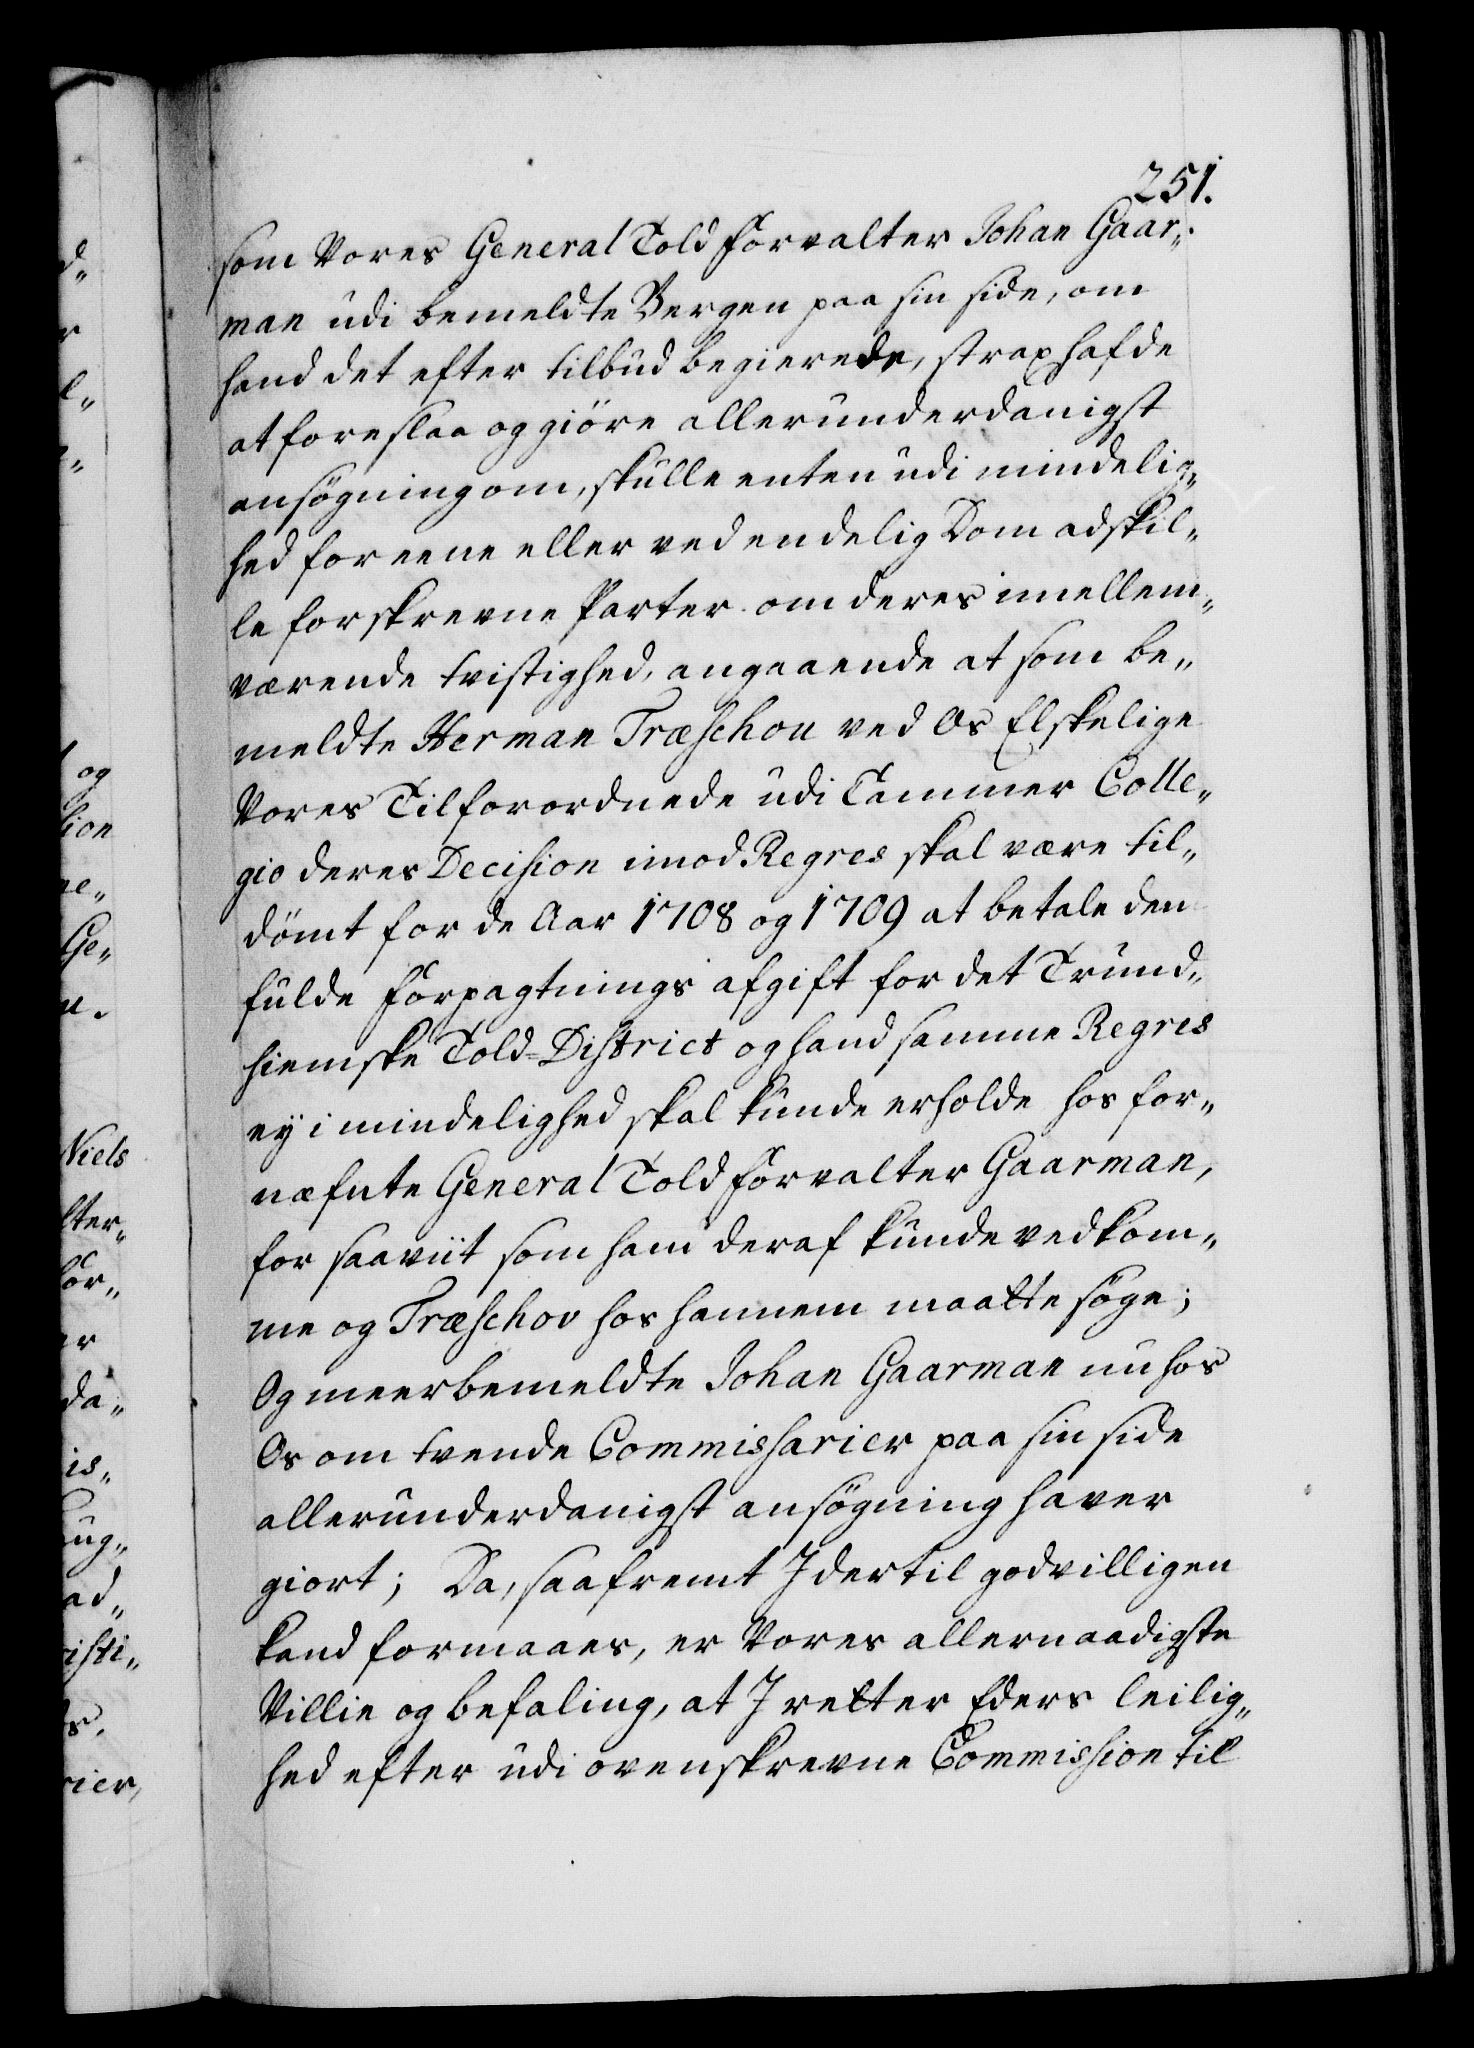 251.
som Vores General Told Forvalter Johan Gaar„
man udi bemeldte Bergen paa sin side, om
hand det efter tilbud begierede, strax hafde
at foreslaa og giöre allerunderdanigst
ansögning om, skulle enten udi mindelig„
hed foreene eller ved endelig Dom adskil„
le forskrevne Parter om deres imellem„
værende tvistighed, angaaende at som be„
meldte Herman Træschou ved Os Elskelige
Vores Tilforordnede udi Cammer Colle„
gio deres Decision imod Regres skal være til„
dömt for de Aar 1708 og 1709 at betale den
fulde Forpagtnings afgift for det Trund„
hiemske Told-District og hand samme Regres
ey i mindelighed skal kunde erholde hos for„
næfnte General Told Forvalter Gaarman,
for saaviit som ham deraf kunde vedkom„
me og Træschov hos hannem maatte söge;
Og meerbemeldte Johan Gaarman nu hos
Os om tvende Commissarier paa sin side
allerunderdanigst ansögning haver
giort; Da, saafremt I dertil godvilligen
kand formaaes, er Vores allernaadigste
Villie og befaling, at I retter Eders leilig„
hed efter udi ovenskrevne Commission til
og
Niels